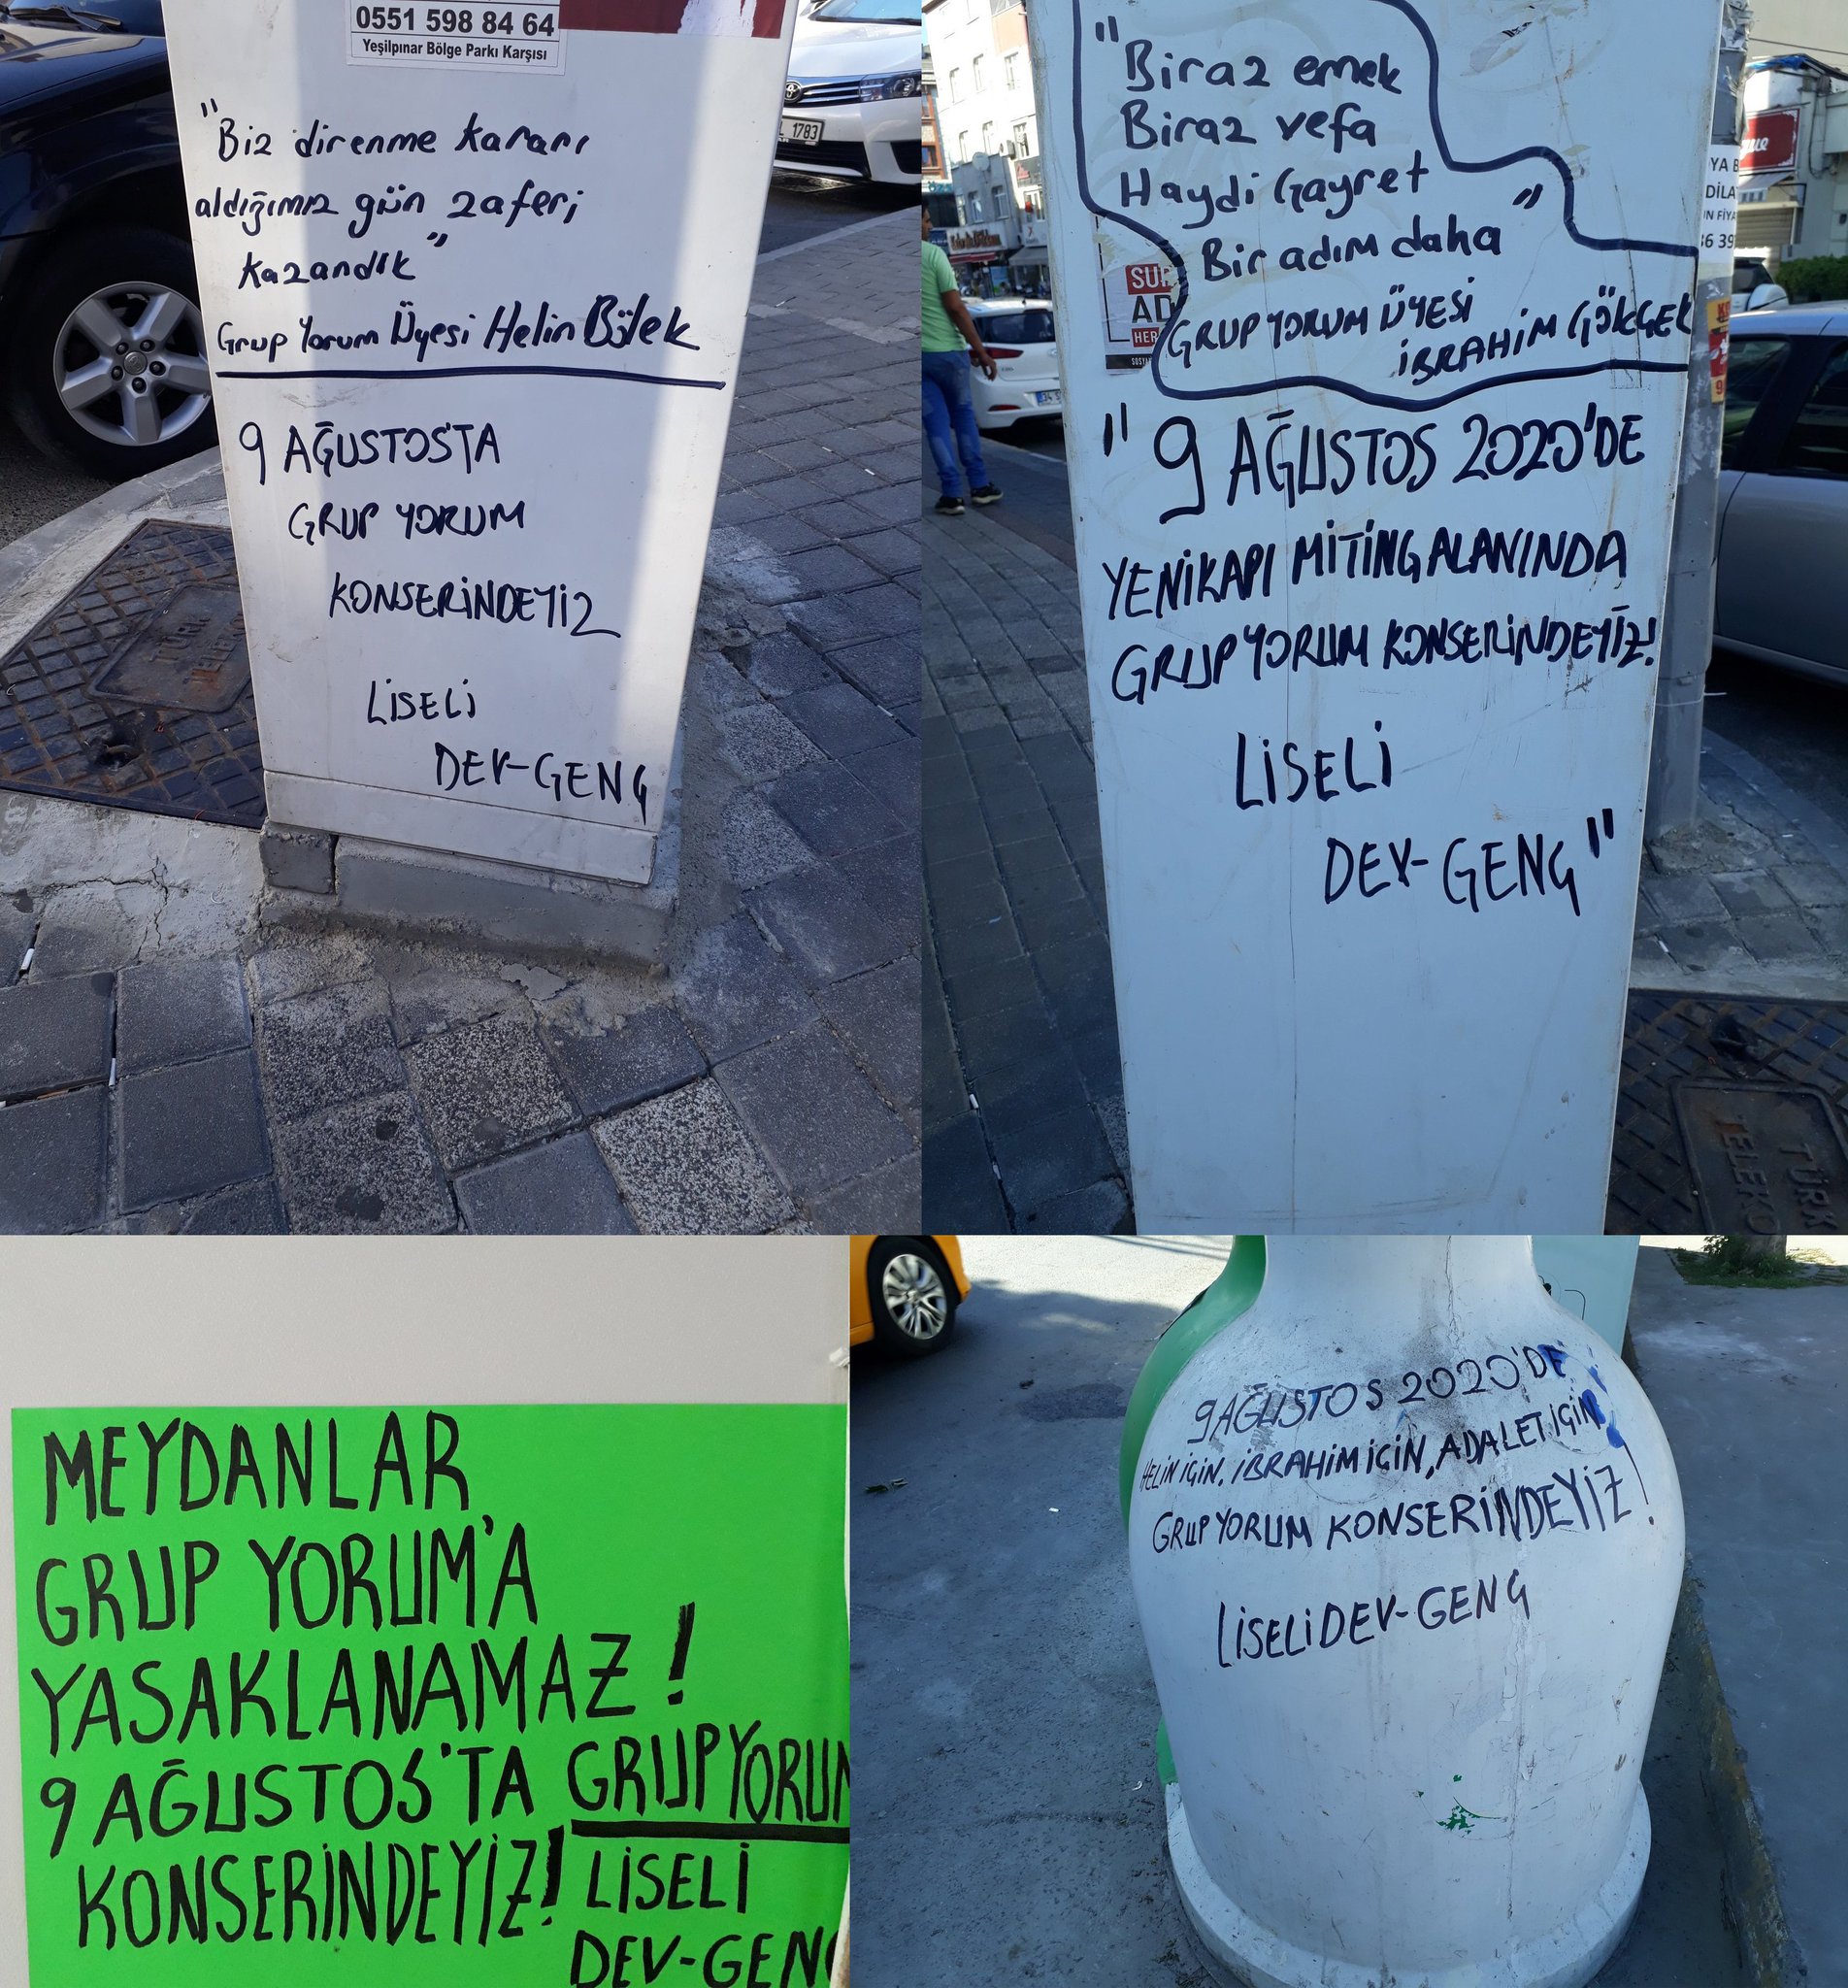 0551 598 84 64
Yeşilpınar Bölge Parkı Karşısı
1783
"Biz direnme kararı
aldığımız gün zaferi
kazandık"
Grup Yorum Üyesi Helin Bölek
9 AĞUSTOS'TA
GRUP YORUM
KONSERİNDEYİZ
LİSELİ
DEV-GENÇ
"Biraz emek
Biraz vefa
Haydi Gayret
Bir adım daha"
GRUP YORUM ÜYESİ
İBRAHİM GÖKÇEK
SUR
AD
HER
"9 AĞUSTOS 2020'DE
YENİKAPI MİTİNG ALANINDA
GRUP YORUM KONSERİNDEYİZ!
LİSELİ
DEV-GENÇ"
YA B
DİLA
36 39
TÜRK
TELEKO
MEYDANLAR
GRUP YORUM'A
YASAKLANAMAZ!
9 AĞUSTOS'TA GRUP YORUM
KONSERİNDEYİZ! LİSELİ
DEV-GENÇ
9 AĞUSTOS 2020'DE
HELİN İÇİN, İBRAHİM İÇİN, ADALET İÇİN
GRUP YORUM KONSERİNDEYİZ!
LİSELİ DEV-GENÇ